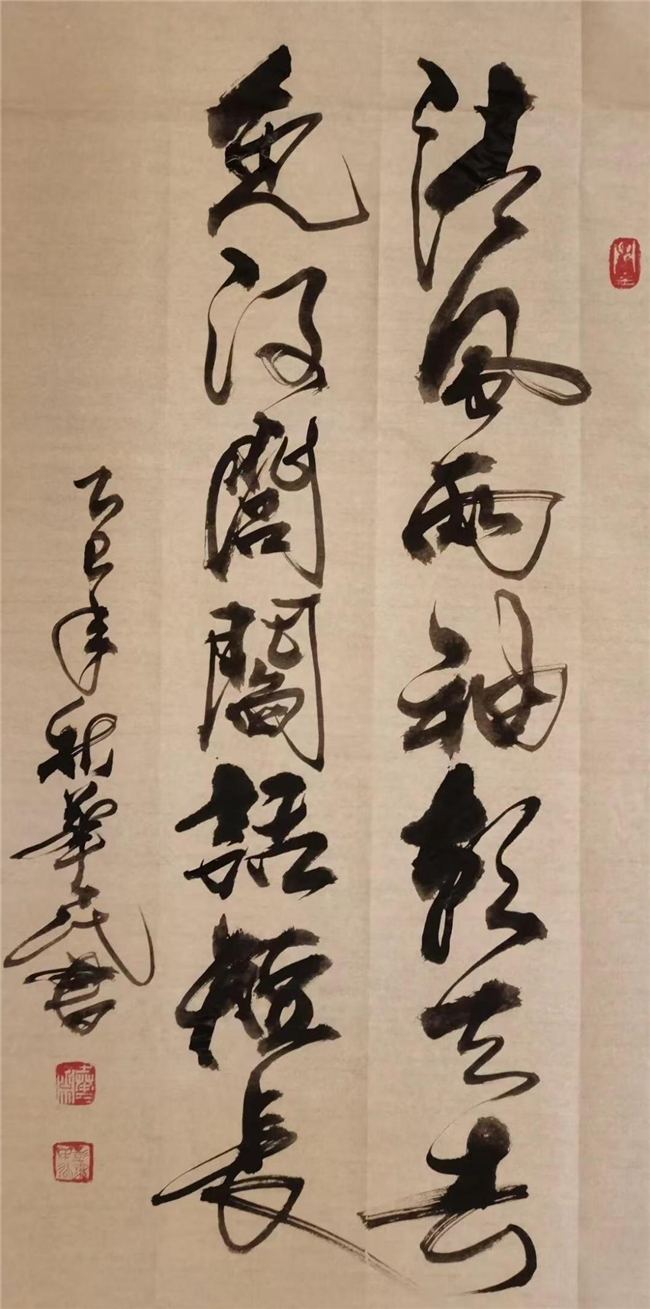 清風兩袖朝天去
免得閭閻話短長
乙巳年秋華書